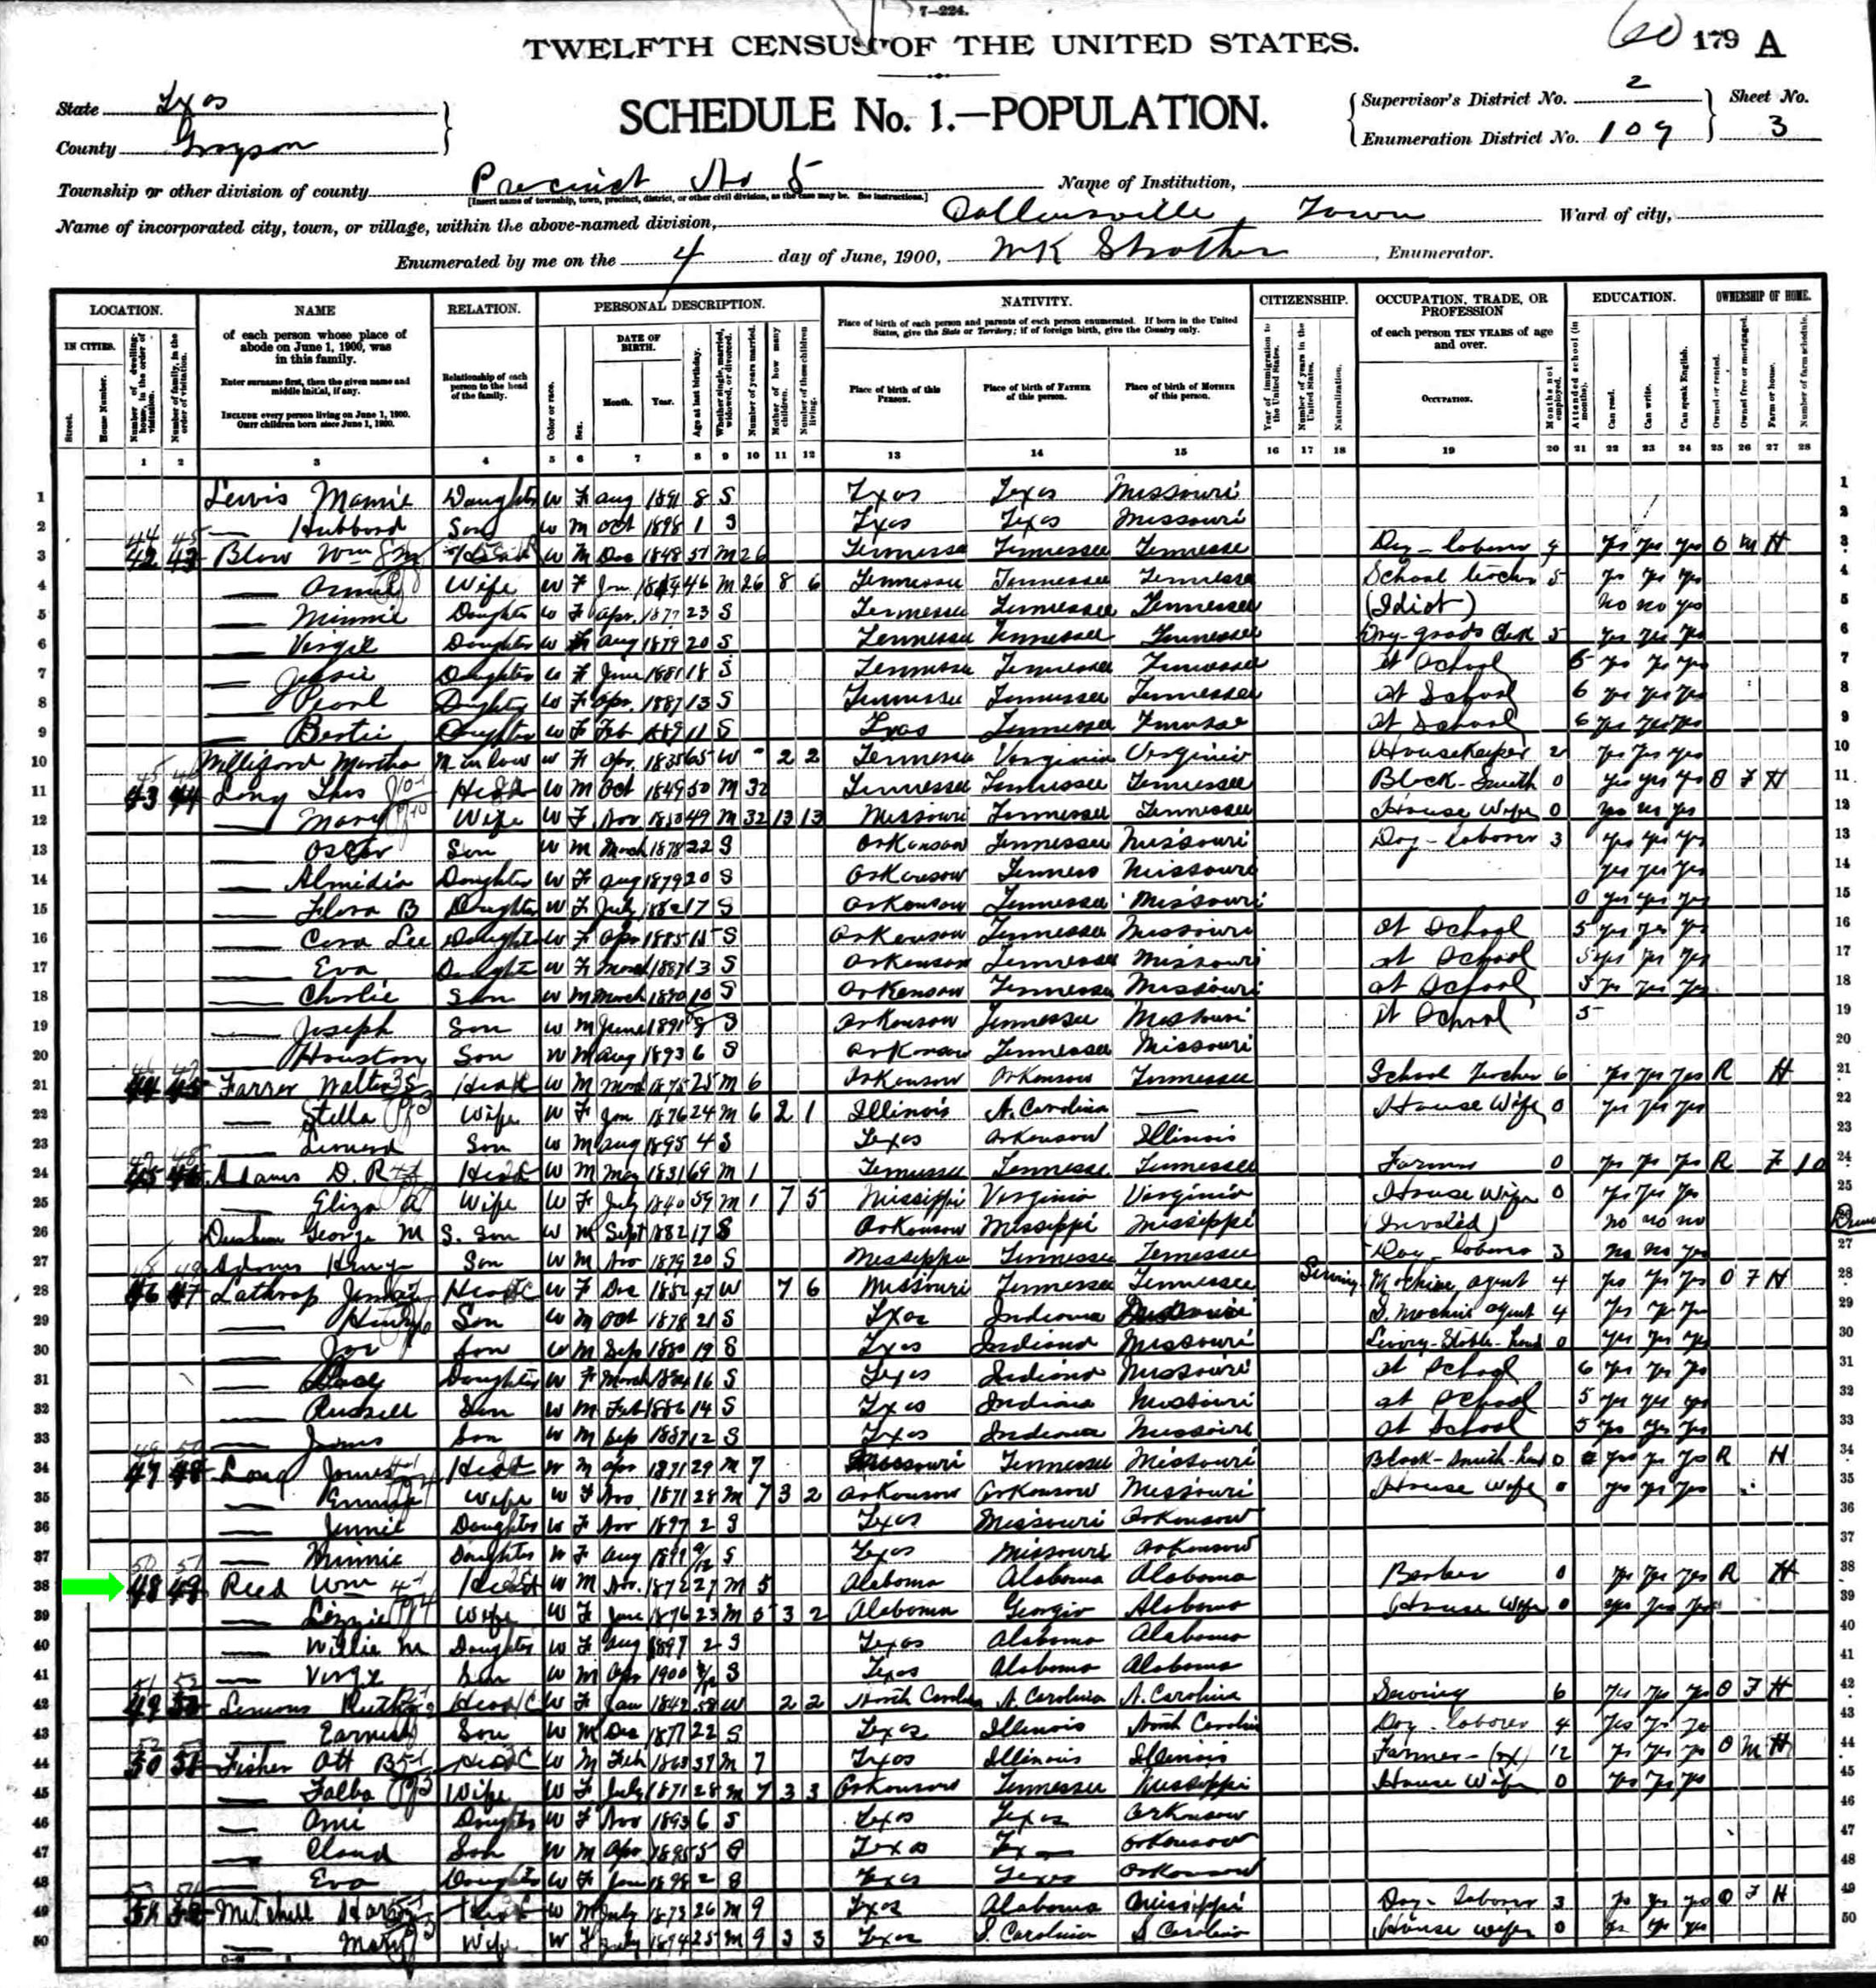 7—224.
60 179 A
TWELFTH CENSUS OF THE UNITED STATES.
State Texas
SCHEDULE No. 1.—POPULATION.
Supervisor's District No. 2 Sheet No.
County Grayson
Enumeration District No. 109 3
Township or other division of county Precinct No 5 Name of Institution,
[Insert name of township, town, precinct, district, or other civil division, as the case may be. See instructions.]
Name of incorporated city, town, or village, within the above-named division, Collinsville, Town Ward of city,
Enumerated by me on the 4 day of June, 1900, W K Strother, Enumerator.
LOCATION. NAME RELATION. PERSONAL DESCRIPTION. NATIVITY. CITIZENSHIP. OCCUPATION, TRADE, OR PROFESSION EDUCATION. OWNERSHIP OF HOME.
IN CITIES. Street. House Number. Number of dwelling-house, in the order of visitation. Number of family, in the order of visitation.
of each person whose place of abode on June 1, 1900, was in this family.
Enter surname first, then the given name and middle initial, if any.
INCLUDE every person living on June 1, 1900.
OMIT children born since June 1, 1900.
Relationship of each person to the head of the family.
Color or race. Sex. DATE OF BIRTH. Month. Year. Age at last birthday. Whether single, married, widowed, or divorced. Number of years married. Mother of how many children. Number of these children living.
Place of birth of each person and parents of each person enumerated. If born in the United States, give the State or Territory; if of foreign birth, give the Country only.
Place of birth of this PERSON. Place of birth of FATHER of this person. Place of birth of MOTHER of this person.
Year of immigration to the United States. Number of years in the United States. Naturalization.
of each person TEN YEARS of age and over.
OCCUPATION. Months not employed.
Attended school (in months). Can read. Can write. Can speak English.
Owned or rented. Owned free or mortgaged. Farm or house. Number of farm schedule.
1 2 3 4 5 6 7 8 9 10 11 12 13 14 15 16 17 18 19 20 21 22 23 24 25 26 27 28
1 Lewis Mamie Daughter W F Aug 1891 8 S Texas Texas Missouri 1
2 — Hubbard Son W M Oct 1898 1 S Texas Texas Missouri 2
3 42 43 Blow Wm W M Dec 1848 51 M 26 Tennessee Tennessee Tennessee Day-laborer 9 yes yes yes O M H 3
4 — Wife W F Jan 46 M 26 8 6 Tennessee Tennessee Tennessee School teacher 5 yes yes yes 4
5 — Minnie Daughter W F Apr. 1877 23 S Tennessee Tennessee Tennessee (Idiot) no no yes 5
6 — Virgie Daughter W F Aug 1879 20 S Tennessee Tennessee Tennessee Dry-goods Clerk 5 yes yes yes 6
7 — Jessie Daughter W F June 1881 18 S Tennessee Tennessee Tennessee At School 5 yes yes yes 7
8 — Pearl Daughter W F Apr. 1887 13 S Tennessee Tennessee Tennessee At School 6 yes yes yes 8
9 — Bertie Daughter W F Feb 1889 11 S Texas Tennessee Tennessee At School 6 yes yes yes 9
10 Martha M in law W F Apr. 1835 65 W - 2 2 Tennessee Virginia Virginia Housekeeper 2 yes yes yes 10
11 43 44 Long Thos Head W M Oct 1849 50 M 32 Tennessee Tennessee Tennessee Black-Smith 0 yes yes yes O F H 11
12 — Mary Wife W F Nov. 1850 49 M 32 13 13 Missouri Tennessee Tennessee House Wife 0 yes 12
13 — Oscar Son W M March 1878 22 S Arkansaw Tennessee Missouri Day-laborer 3 yes yes yes 13
14 — Almidia Daughter W F Aug 1879 20 S Arkansaw Tenness Missouri yes yes yes 14
15 — Flora B Daughter W F July 1882 17 S Arkansaw Tennessee Missouri 0 yes yes yes 15
16 — Cora Lee Daughter W F Apr 1885 15 S Arkansaw Tennessee Missouri At School 5 yes yes yes 16
17 — Eva Daughter W F March 1887 13 S Arkansaw Tennessee Missouri At School 5 yes yes yes 17
18 — Charlie Son W M March 1890 10 S Arkansaw Tennessee Missouri At School 5 yes yes yes 18
19 — Joseph Son W M June 1891 8 S Arkansaw Tennessee Missouri At School 5 19
20 — Houston Son W M Aug 1893 6 S Arkansaw Tennessee Missouri 20
21 44 45 Farrer Walter Head W M March 1875 25 M 6 Arkansaw Arkansaw Tennessee School Teacher 6 yes yes yes R H 21
22 — Stella Wife W F Jan 1876 24 M 6 2 1 Illinois N. Carolina — House Wife 0 yes yes yes 22
23 — Leonard Son W M Aug 1895 4 S Texas Arkansaw Illinois 23
24 45 46 Adams D. R Head W M May 1831 69 M 1 Tennessee Tennessee Tennessee Farmer 0 yes yes yes R F 10 24
25 — Eliza A Wife W F July 1840 59 M 1 7 5 Missippi Virginia Virginia House Wife 0 yes yes yes 25
26 George M S. Son W M Sept 1882 17 S Arkansaw Missippi Missippi (Invalid) no no no
27 Adams Henry Son W M Nov 1879 20 S Missippi Tennessee Tennessee Day laborer 3 no no yes 27
28 46 47 Lathrop Head W F Dec 1852 47 W 7 6 Missouri Tennessee Tennessee Sewing-Machine agent 4 yes yes yes O F H 28
29 — Henry Son W M Oct 1878 21 S Texas Indiana S. Machine agent 4 yes yes yes 29
30 — Joe Son W M Sep 1880 19 S Texas Indiana Missouri Livery-Stable-hand 0 yes yes yes 30
31 — Daughter W F March 1884 16 S Texas Indiana Missouri At School 6 yes yes yes 31
32 — Russell Son W M Feb 1886 14 S Texas Indiana Missouri At School 5 yes yes yes 32
33 — James Son W M Sep 1887 12 S Texas Indiana Missouri At School 5 yes yes yes 33
34 47 48 Long James Head W M Apr 1871 29 M 7 Missouri Tennessee Missouri Black-Smith-hand 0 yes yes yes R H 34
35 — Wife W F Nov. 1871 28 M 7 3 2 Arkansaw Arkansaw Missouri House Wife 0 yes yes yes 35
36 — Jennie Daughter W F Nov 1897 2 S Texas Missouri Arkansaw 36
37 — Minnie Daughter W F Aug 1899 9/12 S Texas Missouri Arkansaw 37
38 48 49 Reed Wm Head W M Nov. 1872 27 M 5 Alabama Alabama Alabama Barber 0 yes yes yes R H 38
39 — Lizzie Wife W F June 1876 23 M 5 3 2 Alabama Georgia Alabama House Wife 0 yes yes yes 39
40 — Willie M Daughter W F Aug 1897 2 S Texas Alabama Alabama 40
41 — Virge Son W M Apr 1900 S Texas Alabama Alabama 41
42 49 50 Lemons Ruth Head W F Jan 1842 58 W 2 2 North Carolina N. Carolina N. Carolina Sewing 6 yes yes yes O F H 42
43 — Earnest Son W M Dec 1877 22 S Texas Illinois North Carolina Day-laborer 4 yes yes yes 43
44 50 51 Fisher Ott B Head W M Feb 1863 37 M 7 Texas Illinois Illinois Farmer 12 yes yes yes O M H 44
45 — Falba Wife W F July 1871 28 M 7 3 3 Arkansaw Tennessee Missippi House Wife 0 yes yes yes 45
46 — Ami Daughter W F Nov 1893 6 S Texas Texas Arkansaw 46
47 — Claud Son W M Apr 1895 5 S Texas Tex Arkansaw 47
48 — Eva Daughter W F Jan 1898 2 S Texas Texas Arkansaw 48
49 Mitchell Head W M July 1873 26 M 9 Texas Alabama Missippi Day-laborer 3 yes yes yes O F H 49
50 — Mary Wife W F July 1874 25 M 9 3 3 Texas S. Carolina S Carolina House wife 0 yes yes yes 50